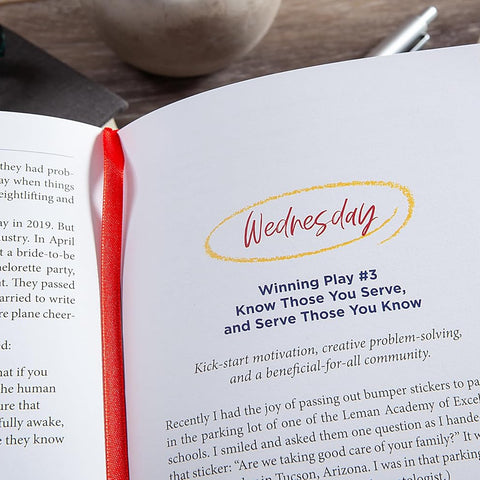 they had prob-
ay when things
eightlifting and
ay in 2019. But
ustry. In April
t a bride-to-be
elorette party,
t. They passed
arried to write
re plane cheer-
d:
hat if you
the human
ure that
fully awake,
e they know
Wednesday
Winning Play #3
Know Those You Serve,
and Serve Those You Know
Kick-start motivation, creative problem-solving,
and a beneficial-for-all community.
Recently I had the joy of passing out bumper stickers to pa
in the parking lot of one of the Leman Academy of Excel
schools. I smiled and asked them one question as I hande
that sticker: “Are we taking good care of your family?” It w
in Tucson, Arizona. I was in that parking